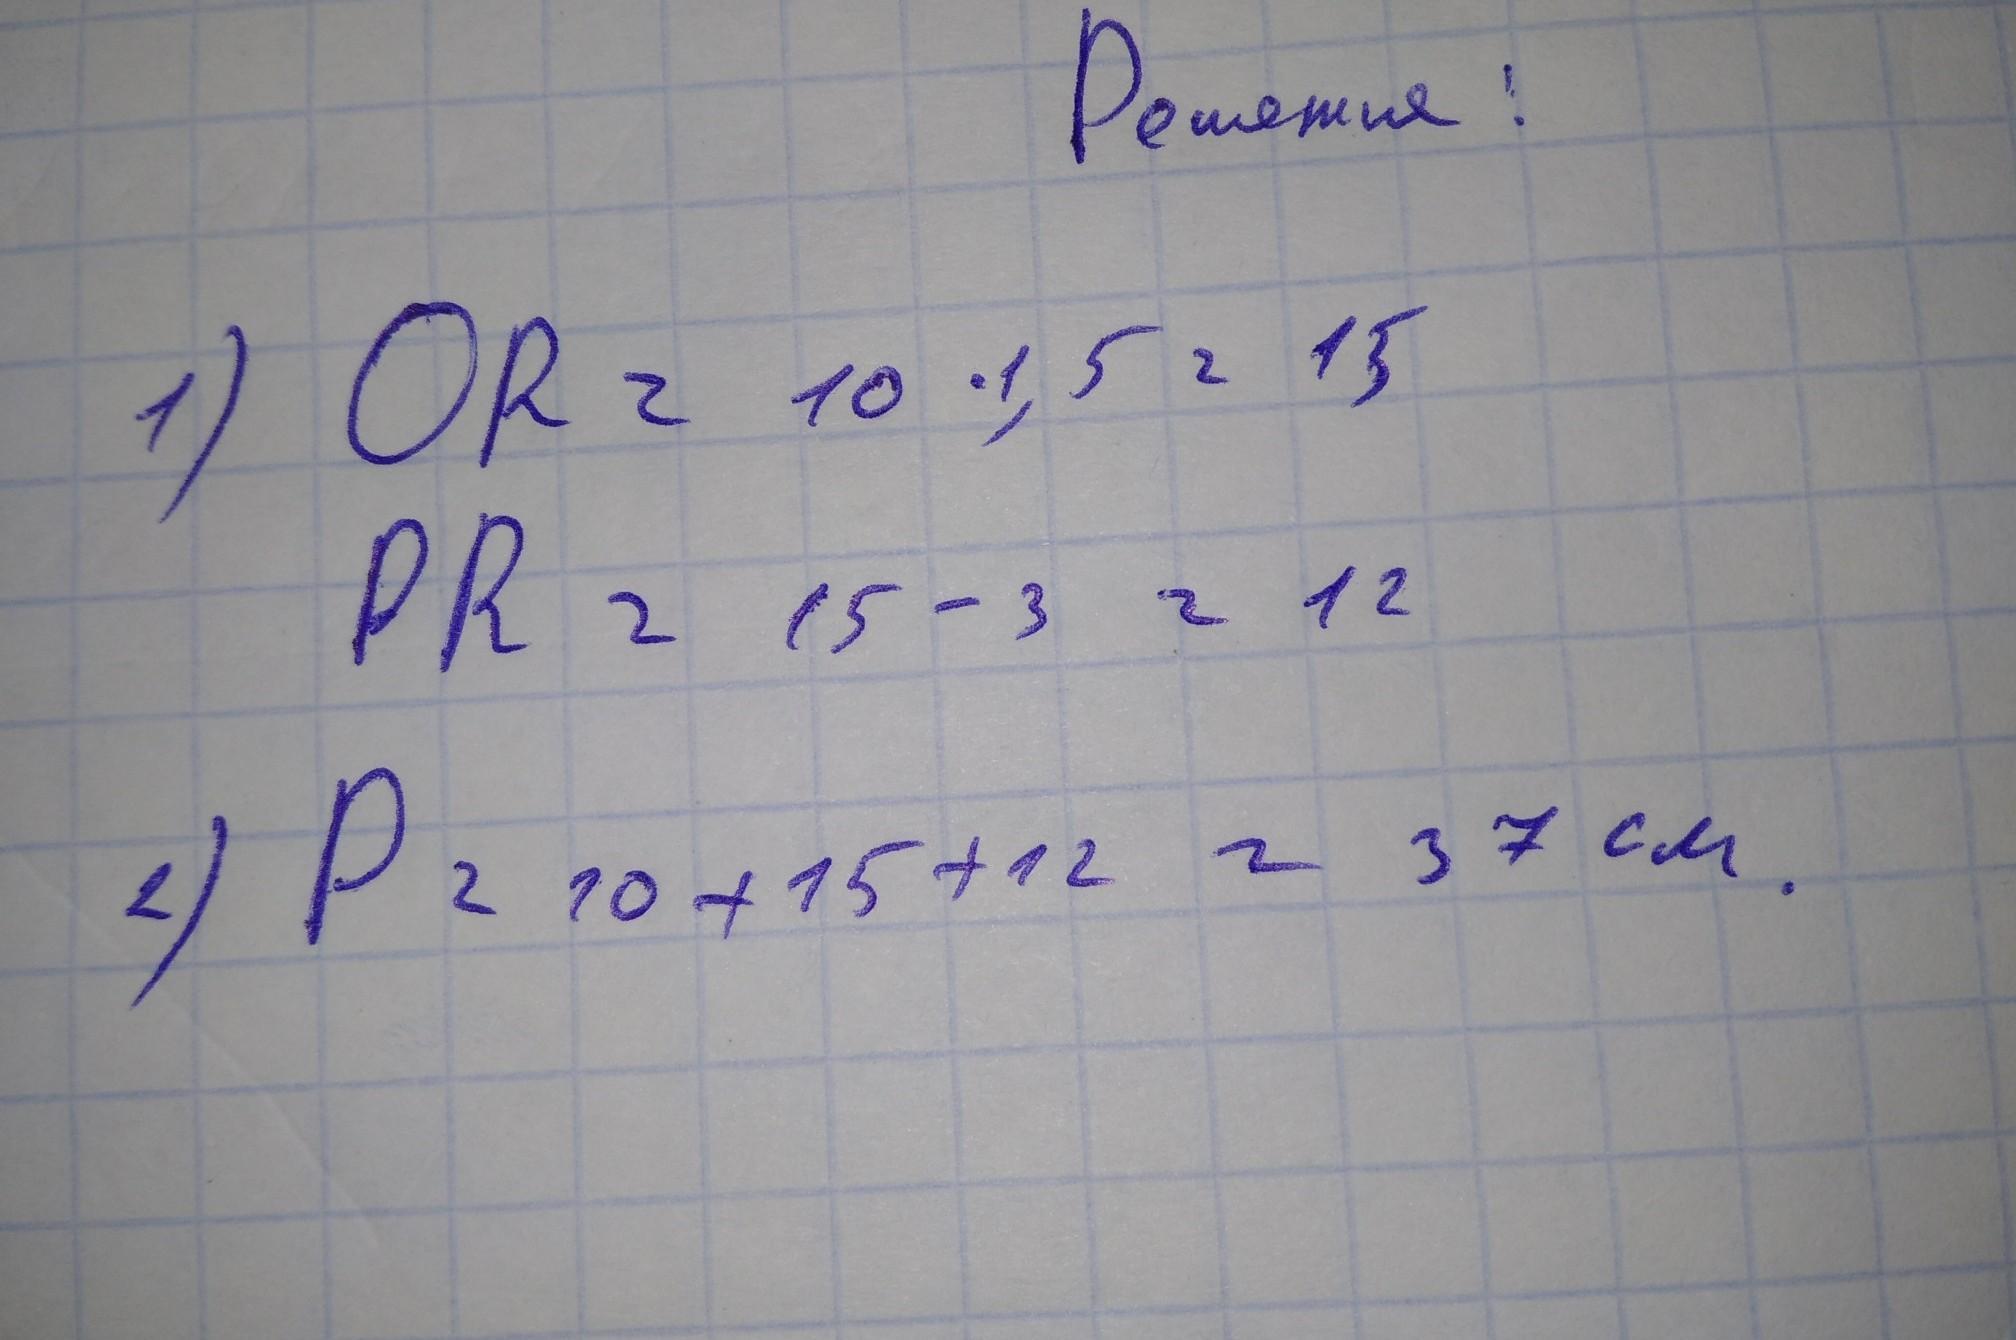 Решения:
1) OR = 10 · 1,5 = 15
PR = 15 - 3 = 12
2) P = 10 + 15 + 12 = 37 см.